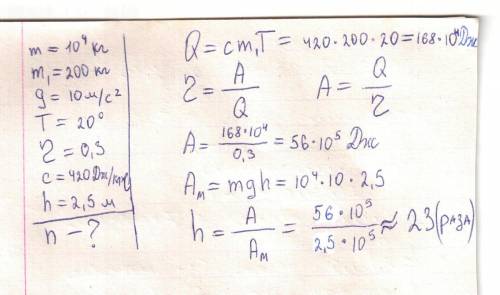 m = 10⁴ кг
m₁ = 200 кг
g = 10 м/с²
T = 20°
η = 0,3
c = 420 Дж/кг°С
h = 2,5 м
n – ?
Q = cm₁T = 420·200·20 = 168·10⁴ Дж
η = A/Q A = Q/η
A = 168·10⁴/0,3 = 56·10⁵ Дж
Aм = mgh = 10⁴·10·2,5
n = A/Aм = 56·10⁵/2,5·10⁵ ≈ 23 (раза)